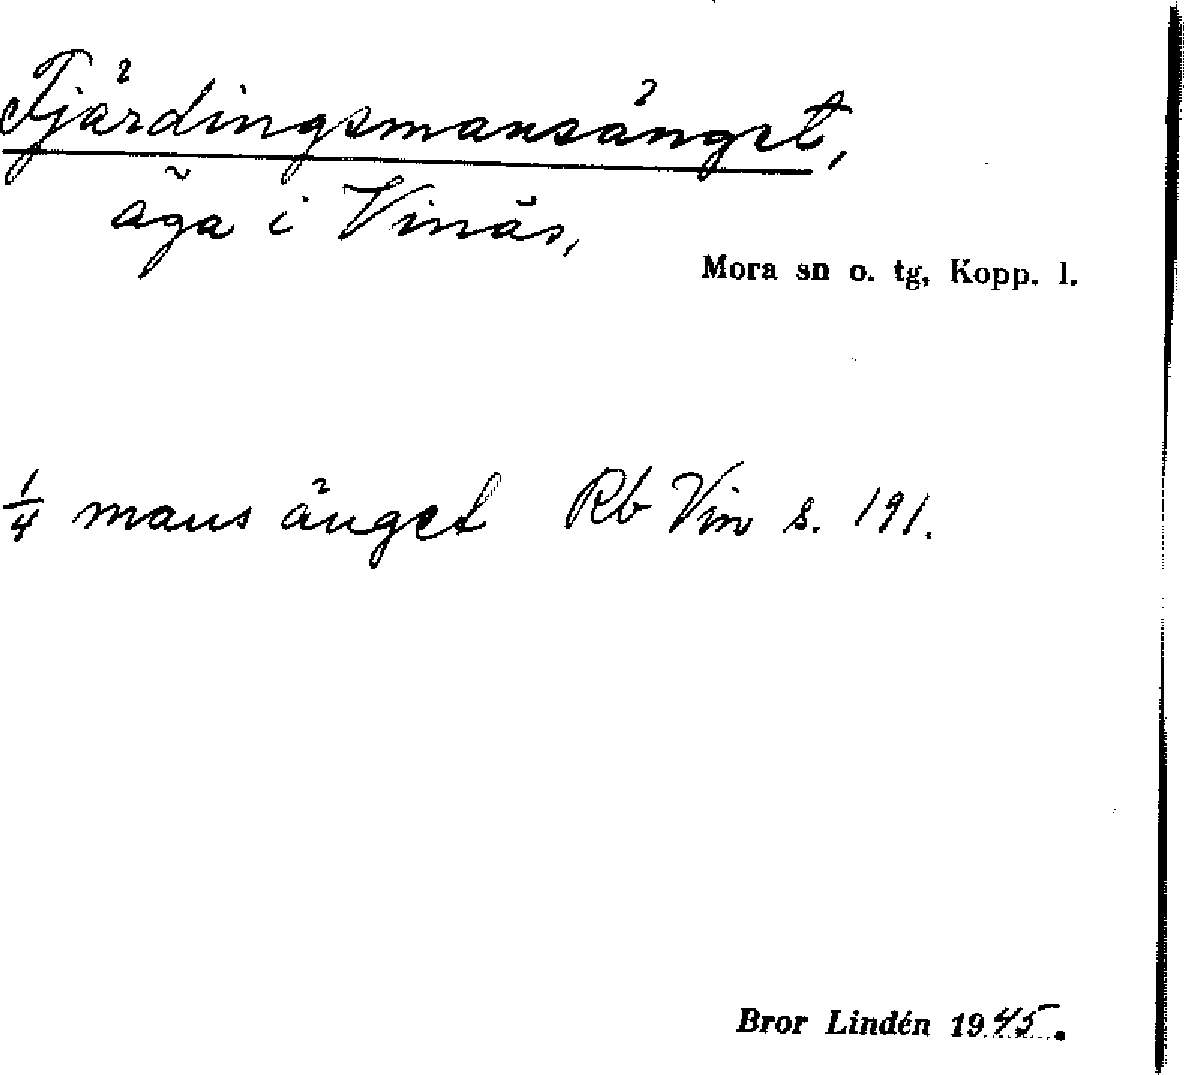 Fjärdingsmansänget,
äga i Vinäs,
Mora sn o. tg, Kopp. l.
1/4 mans änget Rb Vin s. 191.
Bror Lindén 1945.